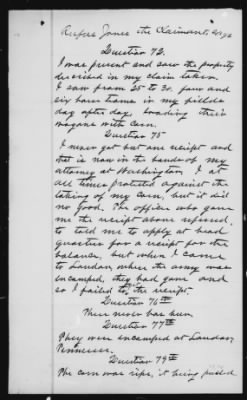 Rufus Jones the Claimant, says
Question 72.
I was present and saw the property
described in my claim taken.
I saw from 25 to 30, four and
six horse teams in my fields
day after day loading their
wagons with corn.
Question 75
I never got but one receipt and
that is now in the hands of my
attorney at Washington I at
all times protested against the
taking of my corn, but it did
no good. The officer who gave
me the receipt above refered,
to told me to apply at head
quarters for a receipt for the
balance, but when I came
to Loudon, where the army was
encamped, they had gone and
so I failed to, the receipt.
Question 76th
There never has been
Question 77th
They were encamped at Loudon,
Tennessee.
Question 79th
The corn was ripe, it being